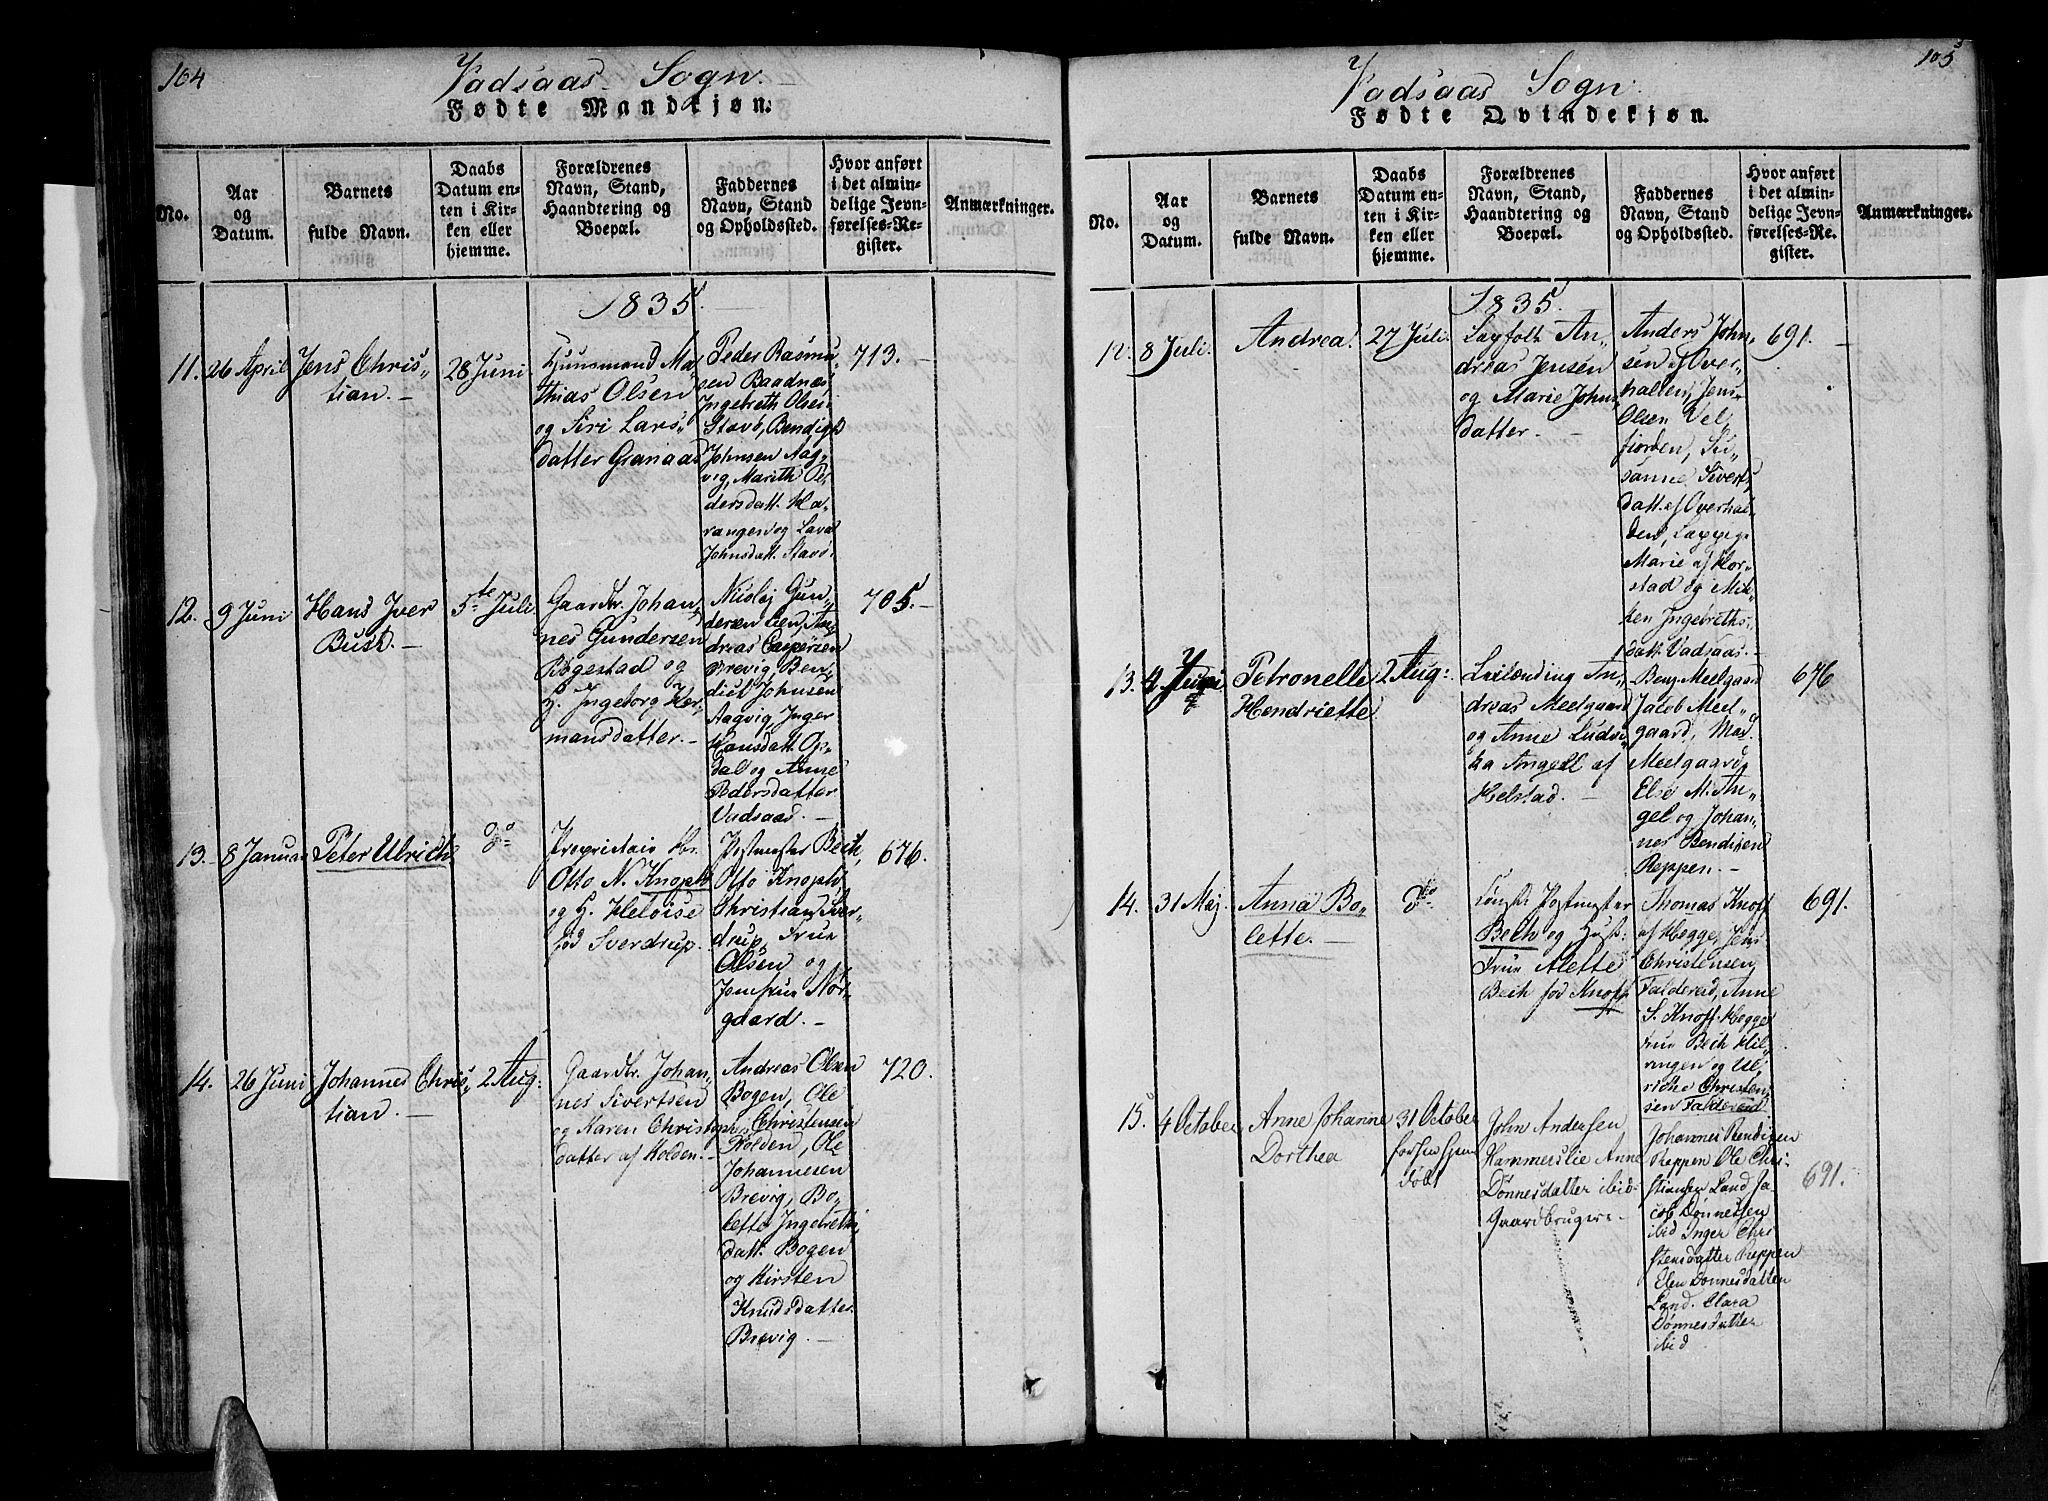 104
Vadsaas Sogn.
Fødte Mandkjøn.
No.
Aar
og
Datum.
Barnets
fulde Navn.
Daabs
Datum en-
ten i Kir-
ken eller
hjemme.
Forældrenes
Navn, Stand,
Haandtering og
Boepæl.
Faddernes
Navn, Stand
og Opholdssted.
Hvor anført
i det almin-
delige Jevn-
førelses-Re-
gister.
Anmærkninger.
1835.
11.
26 April
Jens Chris-
tian.
28 Juni
Huusmand Ma-
thias Olsen
og Siri Lars-
datter Granaas
Peder Rasmu-
sen Baadnes,
Ingebreth Olsen
Stavø, Bendigt
Johnsen Aag-
vig, Marith Pe-
dersdatt. Ha-
rangen og Lava
Johnsdatt. Stavø.
713.
12.
9 Juni
Hans Iver
Bust.
5te Juli.
Gaardbr. Johan-
nes Gundersen
Bøgestad og
H. Ingeborg Her-
mansdatter.
Nicolaj Gun-
dersen Lien, An-
dreas Caspersen
Brevig, Ben-
dict Johnsen
Aagvig, Inger
Hansdatt. Op-
dal og Anne
Pedersdatter
Vadsaas.
705.
13.
8 Januar
Peter Ulrich
do
Proprietair Hr.
Otto N. Knoph
og H. Heloise
fød Sverdrup.
Postmester Bech,
Otto Knoph,
Christian Sver-
drup, Frue
Olsen og
Jomfrue Nor-
gaard.
676.
14.
26 Juni
Johannes Chris-
tian.
2 Aug:
Gaardbr. Johan-
nes Sivertsen
og Karen Christophers
datter af Holden.
Andreas Olsen
Bogen, Ole
Christensen
Holden, Ole
Johannesen
Brevig, Bo-
lette Ingebreths
datt. Bogen
og Kirsten
Knudsdatter
Brevig.
720.
105
Vadsaas Sogn.
Fødte Qvindekjøn.
No.
Aar
og
Datum.
Barnets
fulde Navn.
Daabs
Datum en-
ten i Kir-
ken eller
hjemme.
Forældrenes
Navn, Stand,
Haandtering og
Boepæl.
Faddernes
Navn, Stand
og Opholdssted.
Hvor anført
i det almin-
delige Jevn-
førelses-Re-
gister.
Anmærkninger.
1835.
12.
8 Juli.
Andrea.
27 Juli.
Lapfolk An-
dreas Jensen
og Marie Johns-
datter.
Anders John-
sen af Over-
hallen, Jens
Olsen Vel-
fjorden, Su-
sanne Siverts-
datt. af Overhal-
den, Lappig.
Marie af Hor-
stad og Mik-
ken Ingebreths-
datt. Vadsaas.
691.
13.
4 Juni
Petronelle
Hendriette
2 Aug:
Qvilænding An-
dreas Meelgaard
og Anne Ludvi-
ka Angell af
Helstad.
Benj. Meelgaard
Jacob Meel-
gaard, Mad.
Meelgaard,
Else M. An-
gel og Johan-
nes Bendixen
Reppen.
676
14.
31 Maj.
Anna Bo-
lette.
do
Kongl. Postmester
Bech og Hust:
Frue Alette
Bech fød Knoff
Thomas Knoff
af Hegge, Jens
Christensen
Faldereid, Anne
S. Knoff Hegge
Frue Bech Hil-
ringen og Ul-
ridhe Christen-
sen Faldereid
691.
15.
4 October
Anne Johanne
Dorthea
31 October
forhen hjem
døbt
John Andersen
Hammerslie Anne
Dønnesdatter ibid
Gaardbrugere
Johannes Bendixen
Reppen Ole Chri-
stiansen Land Ja-
cob Dønnessen
ibid Inger Chri
stensdatter Reppen
Elen Dønnesdatter
Land. Clara
Dønnesdatter
ibid
691.